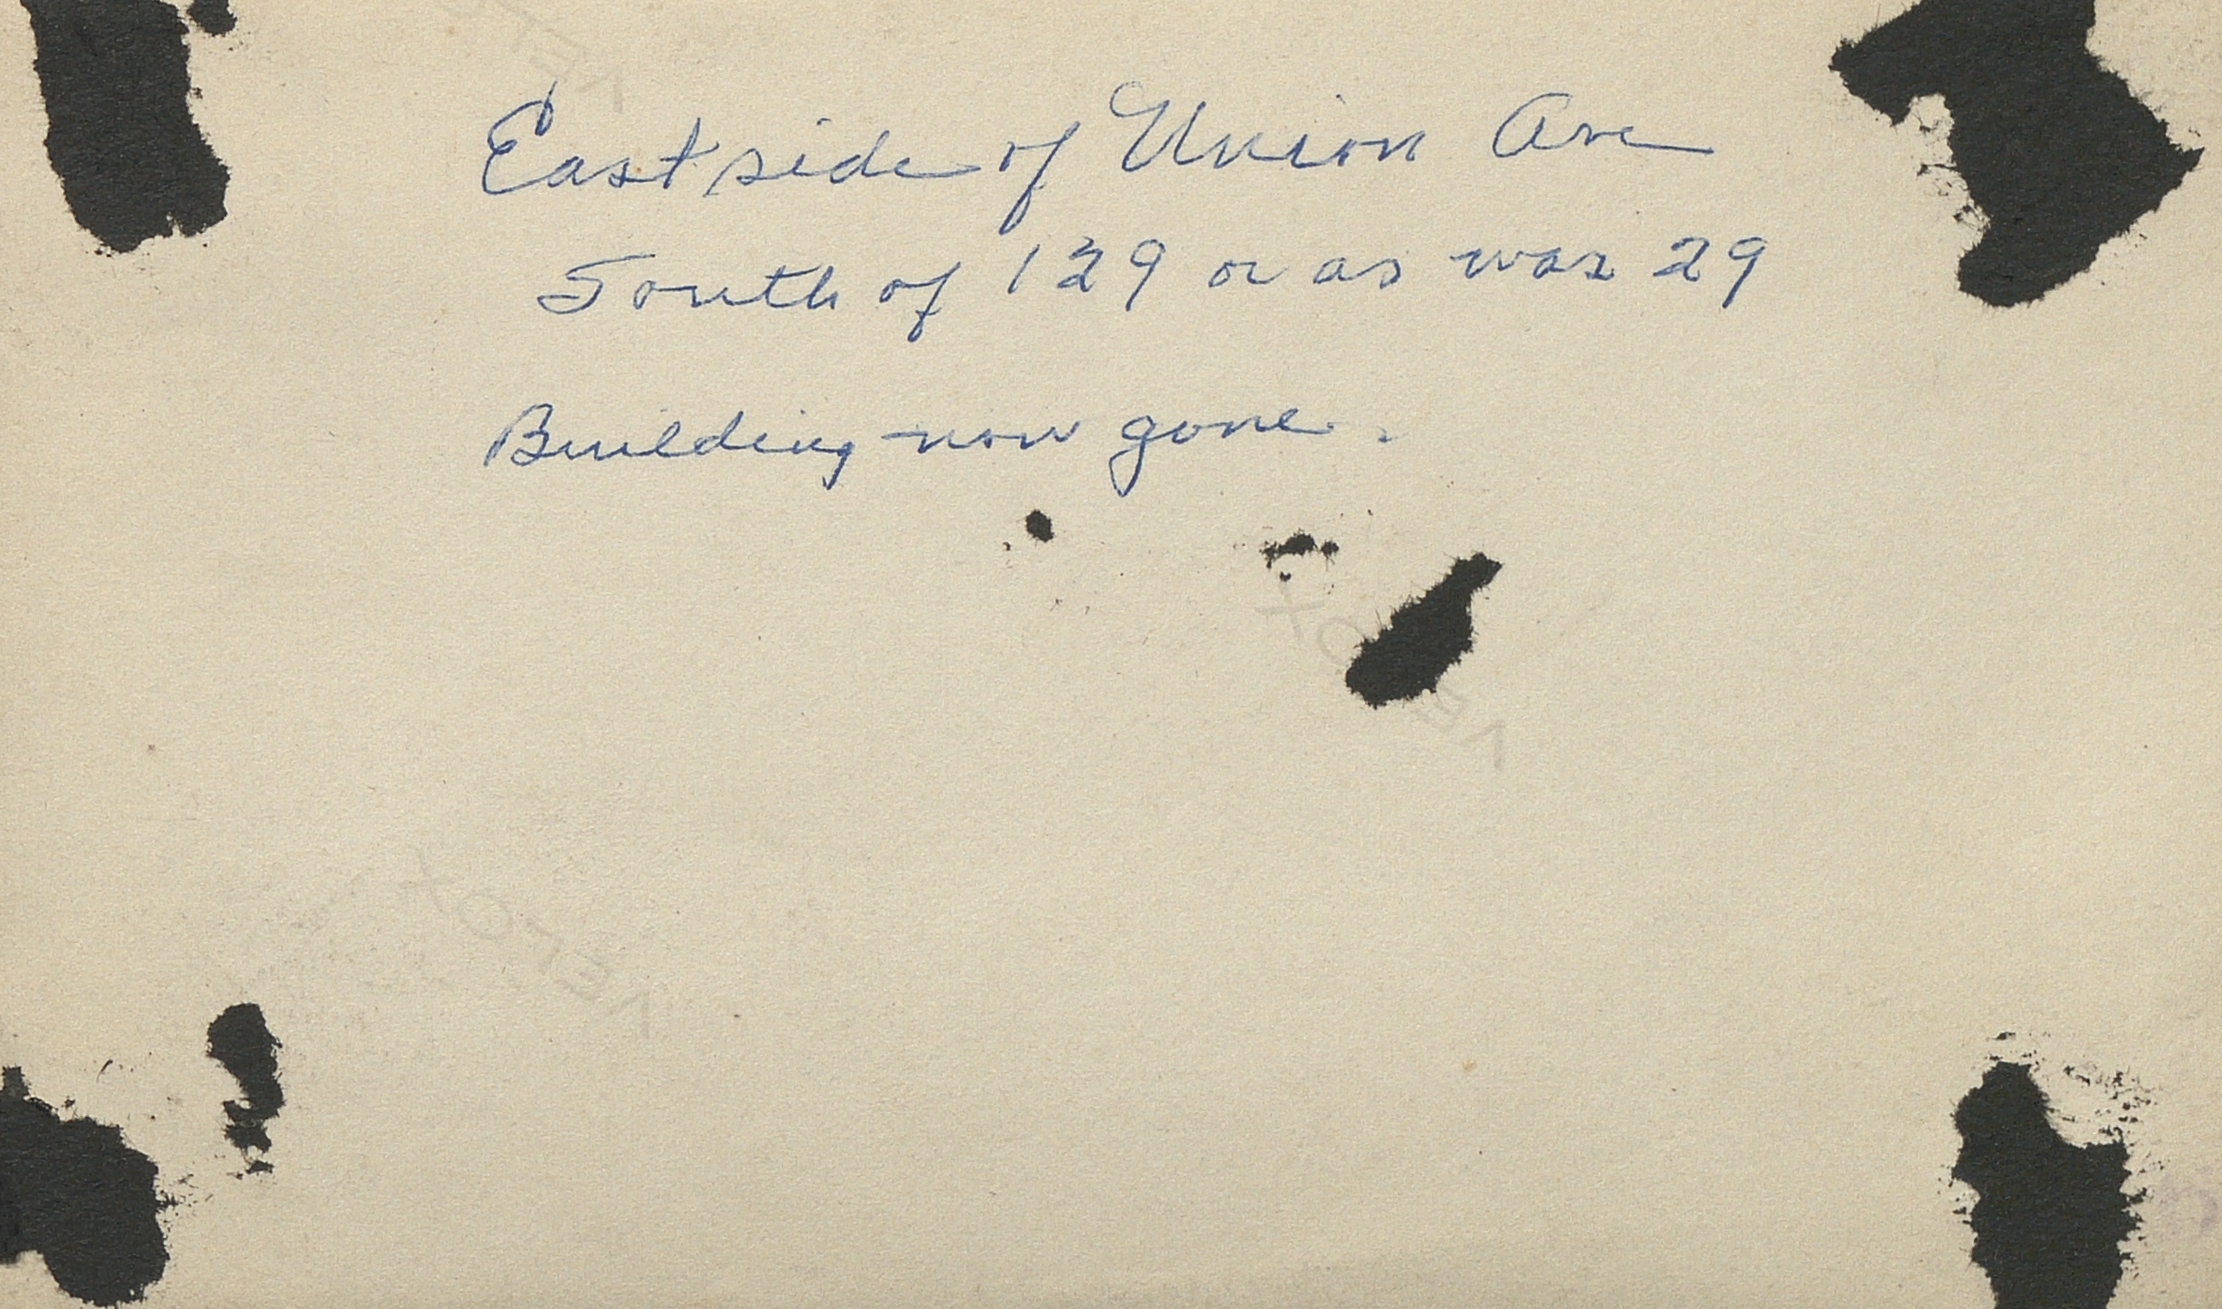 East side of Union Ave
South of 129 or as was 29
Building now gone.
VELOX